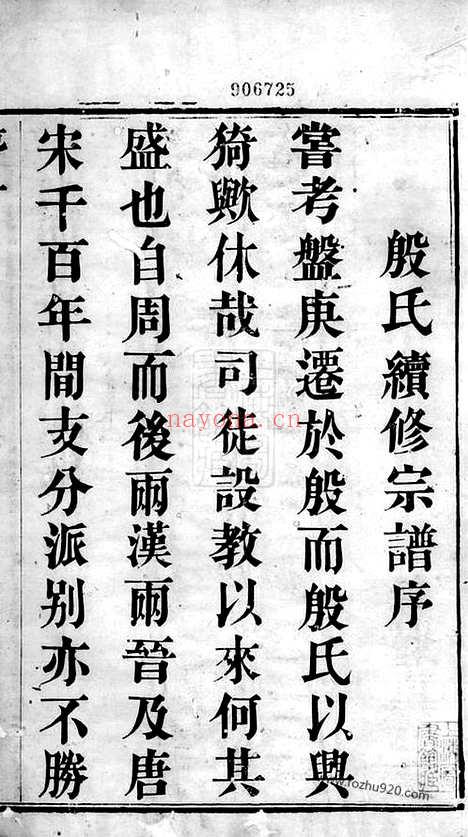 906725
殷氏續修宗譜序
嘗考盤庚遷於殷而殷氏以興
猗歟休哉司徒設教以來何其
盛也自周而後兩漢兩晉及唐
宋千百年間支分派别亦不勝
nayona.cn
www.fozhu920.com